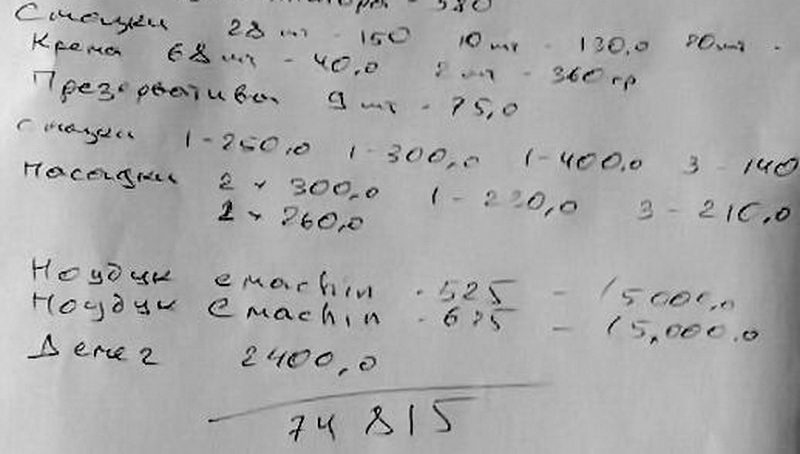 - 380
Смазки 28 шт - 150 10 шт - 130,0 20 шт -
Крема 68 шт - 40,0 2 шт - 360 гр
Презервативы 9 шт - 75,0
Смазки 1 - 250,0 1 - 300,0 1 - 400,0 3 - 140
Насадки 2 × 300,0 1 - 220,0 3 - 210,0
1 × 260,0
Ноудук emachin - 525 - 15000,0
Ноудук Emachin - 625 - 15,000.0
Денег 2400,0
74 815